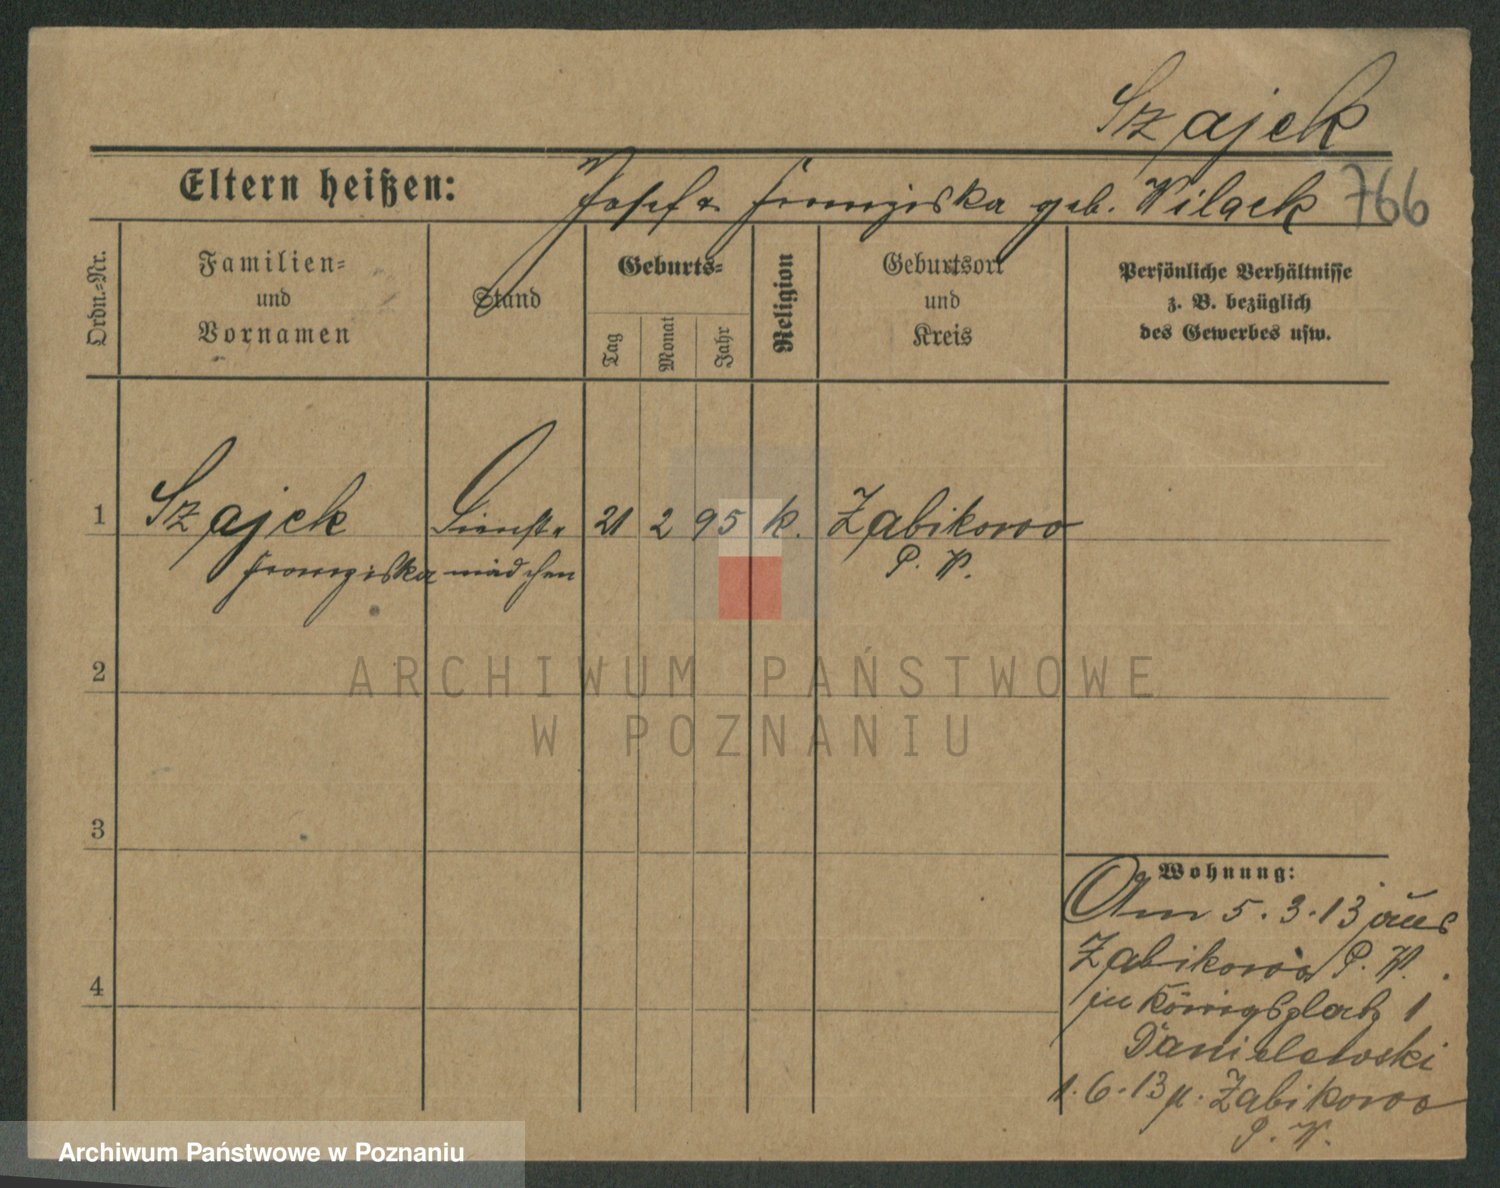 Szajek
Eltern heißen: Josef u. Franziska geb. Wilaek 766
Ordn.-Nr.
Familien-
und
Vornamen
Stand
Geburts-
Tag
Monat
Jahr
Religion
Geburtsort
und
Kreis
Persönliche Verhältnisse
z. B. bezüglich
des Gewerbes usw.
1 Szajek Dienst- 21 2 95 k. Zabikowo
Franziska mädchen P. W.
ARCHIWUM PAŃSTWOWE
W POZNANIU
2
3
4
Wohnung:
Am 5.3.13 aus
Zabikowo P. W.
in Königsplatz 1
Danielewski
1.6.13 n. Zabikowo
P. W.
Archiwum Państwowe w Poznaniu